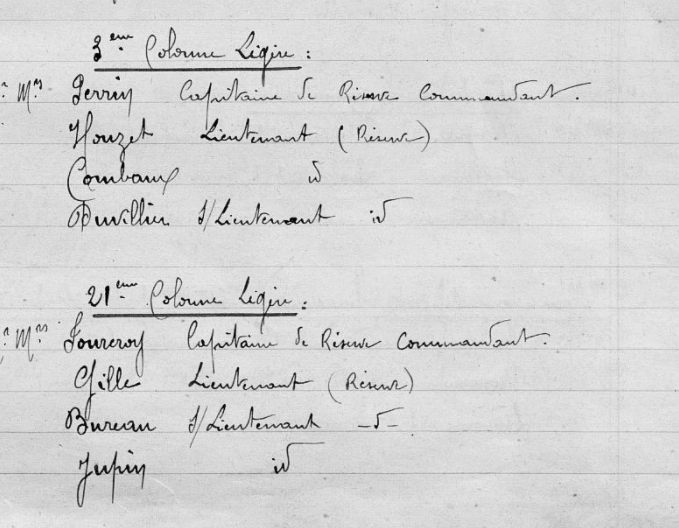 3ème Colonne Légère :
Mrs Perrin Capitaine de Réserve Commandant.
Houzet Lieutenant (Réserve)
Combaux id
Duvillier S/Lieutenant id
21ème Colonne Légère :
Mrs Fourcroy Capitaine de Réserve Commandant.
Gille Lieutenant (Réserve)
Bureau S/Lieutenant -d-
Jupin id